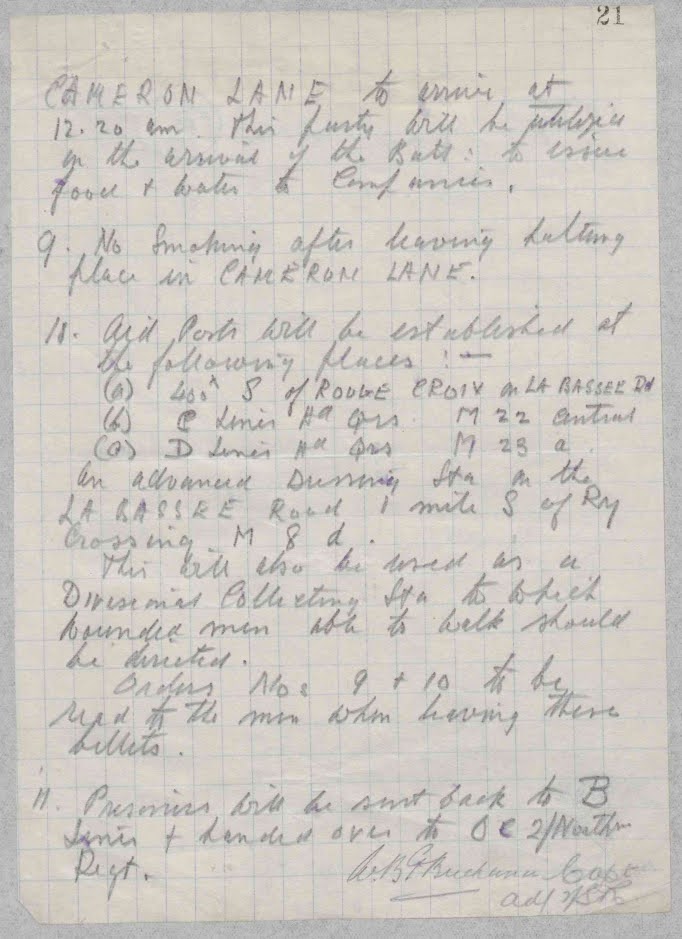 21
CAMERON LANE to arrive at
12.20 am. This party will be utilized
on the arrival of the Batt: to issue
food & water to Companies.
9. No Smoking after leaving halting
place in CAMERON LANE.
10. Aid Posts will be established at
the following places :—
(a) 400x S of ROUGE CROIX on LA BASSEE Rd
(b) C Lines Hd Qrs. M 22 central
(c) D Lines Hd Qrs M 23 a.
An advanced Dressing Sta on the
LA BASSEE Road 1 mile S of Ry
Crossing M 8 d.
This will also be used as a
Divisional Collecting Sta to which
wounded men able to walk should
be directed.
Orders Nos 9 & 10 to be
read to the men when leaving there
billets.
11. Prisoners will be sent back to B
Lines & handed over to OC 2/North
Regt.
Buchanan Capt
Adj